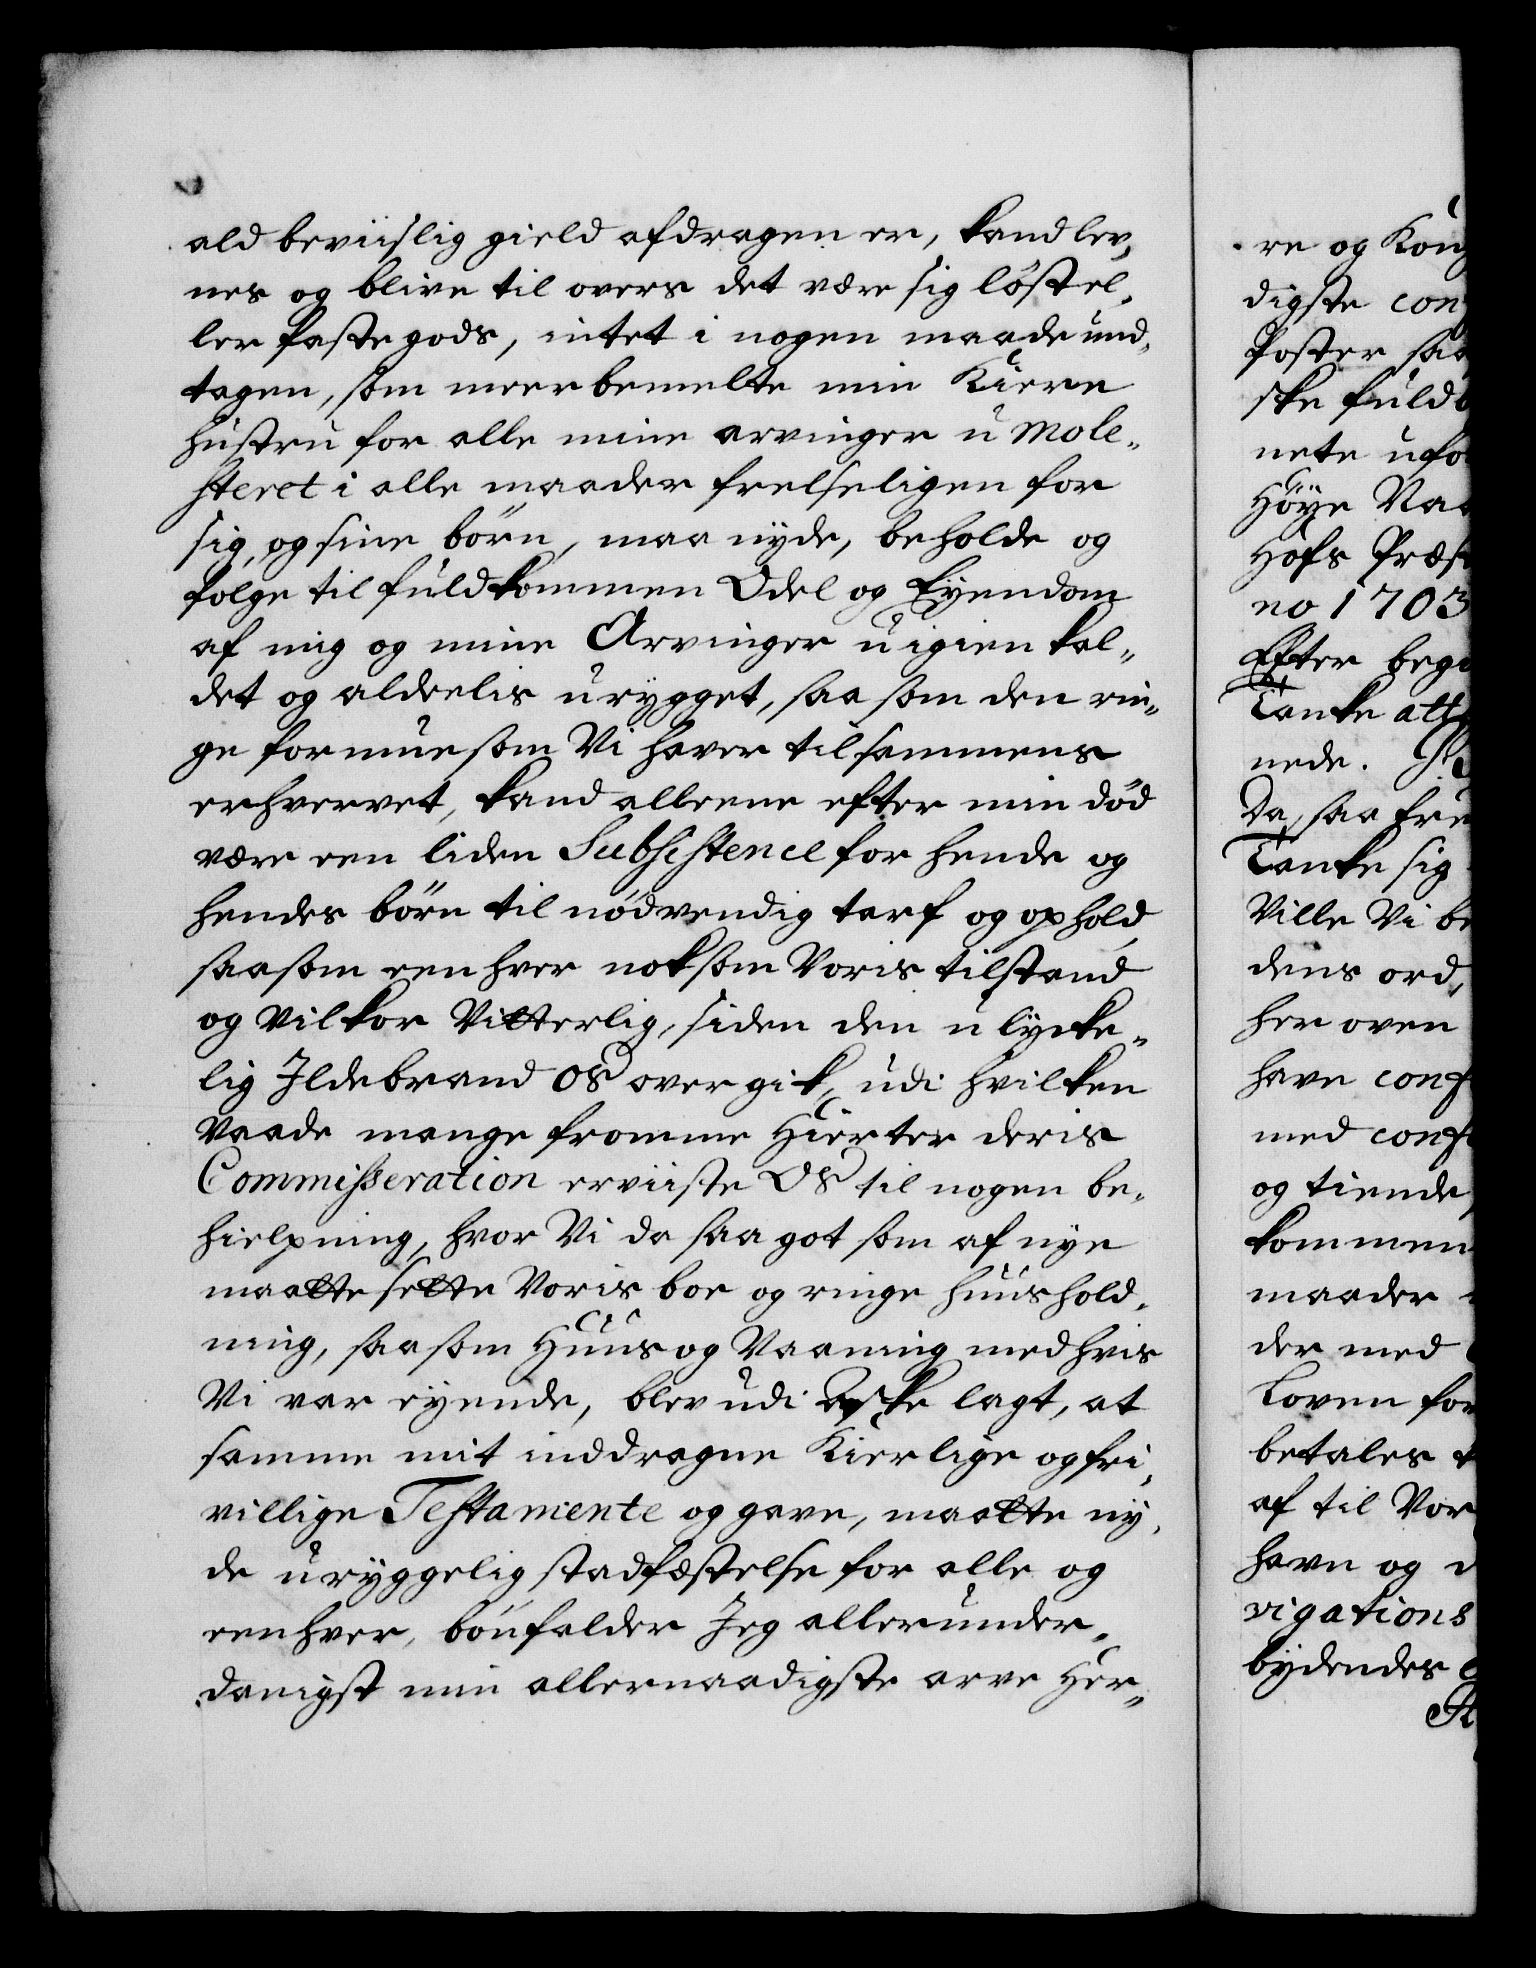 ald beviislig gield afdragen er, kand lev„
nes og blive til overs det være sig løst el„
ler faste gods, intet i nogen maade und„
tagen, som meerbemelte min Kiere
hustru for alle mine arvinger u mole„
steret i alle maader frelseligen for
sig, og sine börn, maa nyde, beholde og
følge til fuldkommen Odel og Eyendom
af mig og mine Arvinger u igien kal„
det og aldeelis urygget, saa som den rin„
ge formue som Vi haver tilsammens
erhvervet, kand alleene efter min död
være een liden Subsistence for hende og
hendes börn til nödvendig tarf og ophold,
saasom een hver noksom Voris tilstand
og Vilkor Vitterlig, siden den ulycke„
lig Ildebrand os overgik, udi hvilken
Vaade mange fromme Hierter deris
Commisseration erviiste Os til nogen be„
hielpning, hvor Vi da saa got som af nye
maatte sette Voris boe og ringe huushold„
ning, saasom Huus og Vaaning med hvis
Vi var eyende, blev udi Aske lagt, at
samme mit inddragne Kierlige og fri„
villige Testamente og gave, maatte ny„
de uryggelig stadfæstelse for alle og
eenhver, bönfalder Jeg allerunder„
danigst min allernaadigste arve Her„
re og Kong
digste con
Poster saa
ske fuldb
nete ufo
Höye Naa
Hofs Præs
no 1703
Efter begi
Tanke att
nede.
Da, saa fre
Tanke sig
Ville Vi be
dens ord,
her oven
have conf
med conf
og tiende
kommen
maader
der med
Loven for
betales
af til Vor
havn og
vigations
bydendes